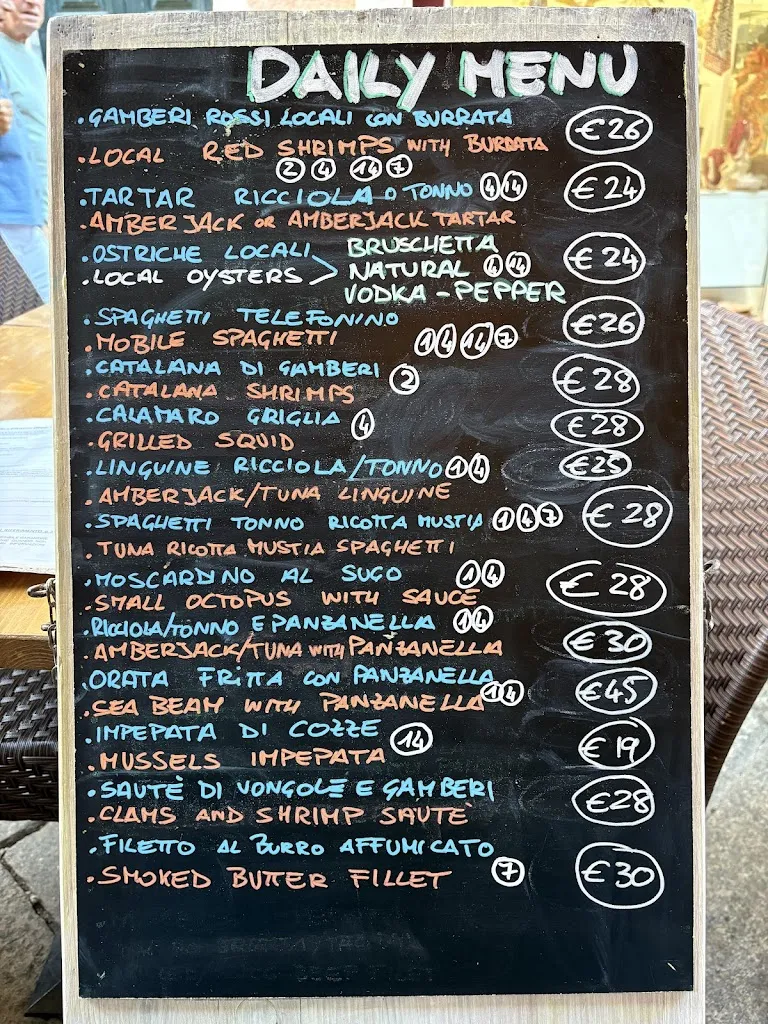 DAILY MENU
.GAMBERI ROSSI LOCALI CON BURRATA
.LOCAL RED SHRIMPS WITH BURRATA €26
2 4 14 7
.TARTAR RICCIOLA O TONNO 4 14 €24
.AMBER JACK OR AMBERJACK TARTAR
.OSTRICHE LOCALI BRUSCHETTA
.LOCAL OYSTERS > NATURAL 4 14 €24
VODKA - PEPPER
.SPAGHETTI TELEFONINO €26
.MOBILE SPAGHETTI 1 4 14 7
.CATALANA DI GAMBERI 2 €28
.CATALANA SHRIMPS
.CALAMARO GRIGLIA 4 €28
.GRILLED SQUID
.LINGUINE RICCIOLA/TONNO 1 4 €25
.AMBERJACK/TUNA LINGUINE
.SPAGHETTI TONNO RICOTTA MUSTIA 1 4 7 €28
.TUNA RICOTTA MUSTIA SPAGHETTI
.MOSCARDINO AL SUGO 1 4 €28
.SMALL OCTOPUS WITH SAUCE
.RICCIOLA/TONNO E PANZANELLA 1 4 €30
.AMBERJACK/TUNA WITH PANZANELLA
.ORATA FRITTA CON PANZANELLA €45
.SEA BEAM WITH PANZANELLA 1 4
.IMPEPATA DI COZZE 14 €19
.MUSSELS IMPEPATA
.SAUTÈ DI VONGOLE E GAMBERI €28
.CLAMS AND SHRIMP SAUTÈ
.FILETTO AL BURRO AFFUMICATO €30
.SMOKED BUTTER FILLET 7